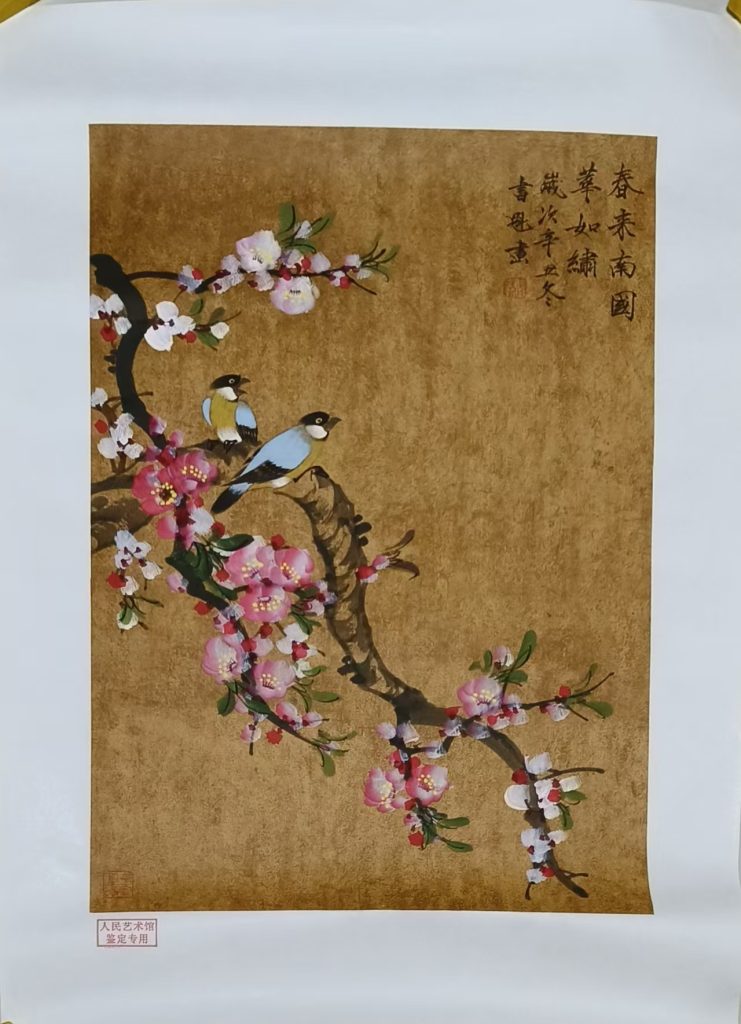 春来南國
華如繡
歲次辛丑冬
書恩畫
人民艺术馆
鉴定专用